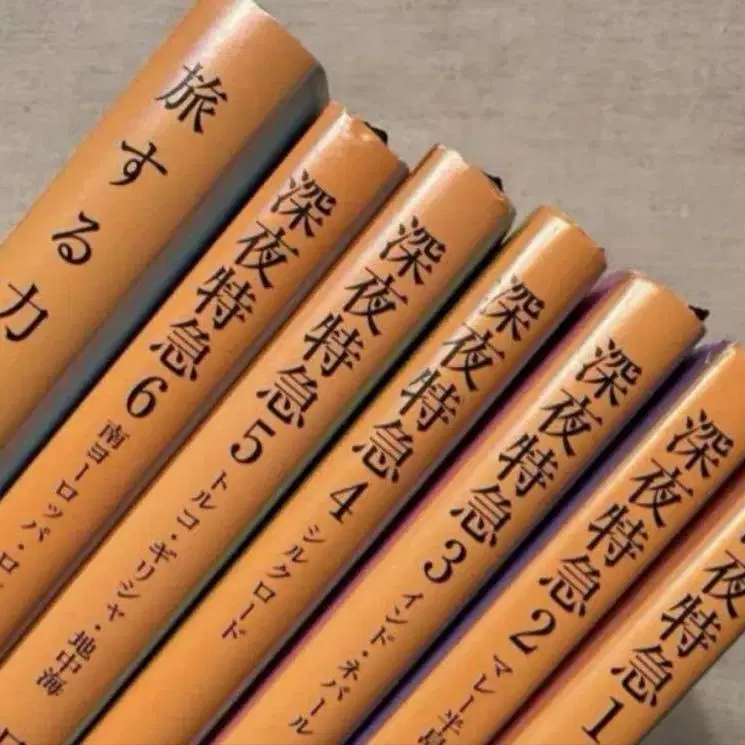 旅する力
深夜特急6 南ヨーロッパ・ロ
深夜特急5 トルコ・ギリシャ・地中海
深夜特急4 シルクロード
深夜特急3 インド・ネパール
深夜特急2 マレー半島
深夜特急1